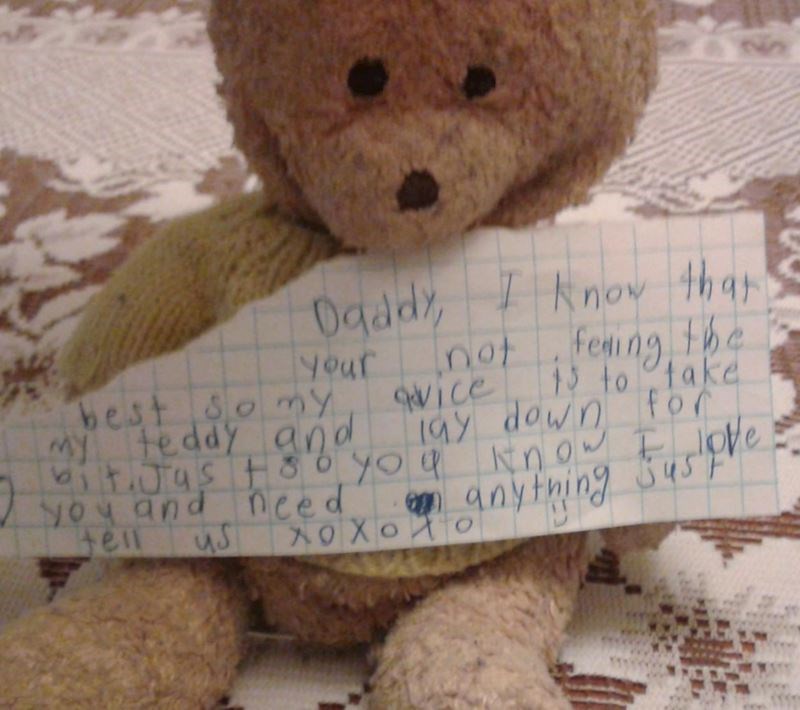 Daddy, I know that
your not feding the
best so my avice is to take
my teddy and lay down for
bit. Just so you know I love
you and need anything just
tell us xoxoxo